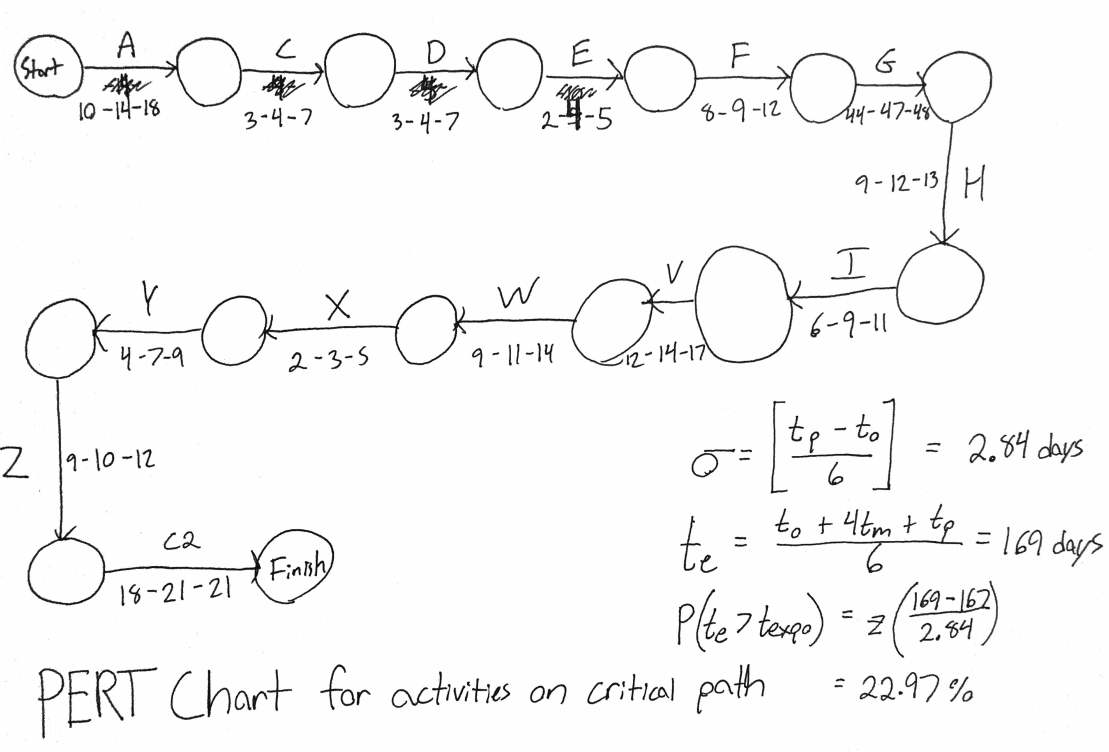 Start
A
10-14-18
C
3-4-7
D
3-4-7
E
2-4-5
F
8-9-12
G
44-47-48
9-12-13 H
I
6-9-11
V
12-14-17
W
9-11-14
X
2-3-5
Y
4-7-9
Z 9-10-12
C2
18-21-21
Finish
σ = [(tp - to)/6] = 2.84 days
te = (to + 4tm + tp)/6 = 169 days
P(te > texpo) = z((169-167)/2.84)
= 22.97%
PERT Chart for activities on critical path